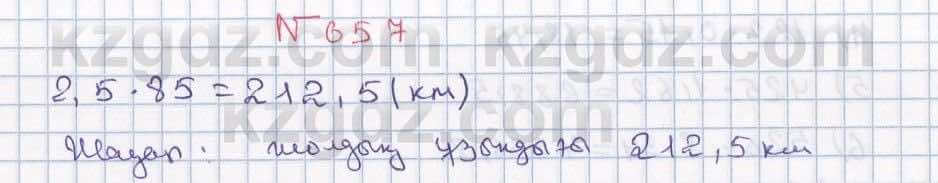 № 657
2,5 · 85 = 212,5 (км)
Жауап: жолдың ұзындығы 212,5 км
kzgdz.com kzgdz.com
kzgdz.com